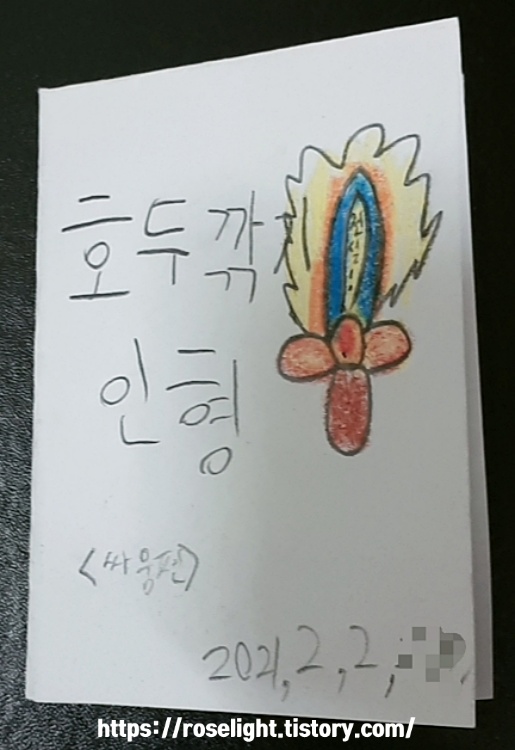 호두깎기
인형
<싸움편>
2021, 2, 2,
https://roselight.tistory.com/